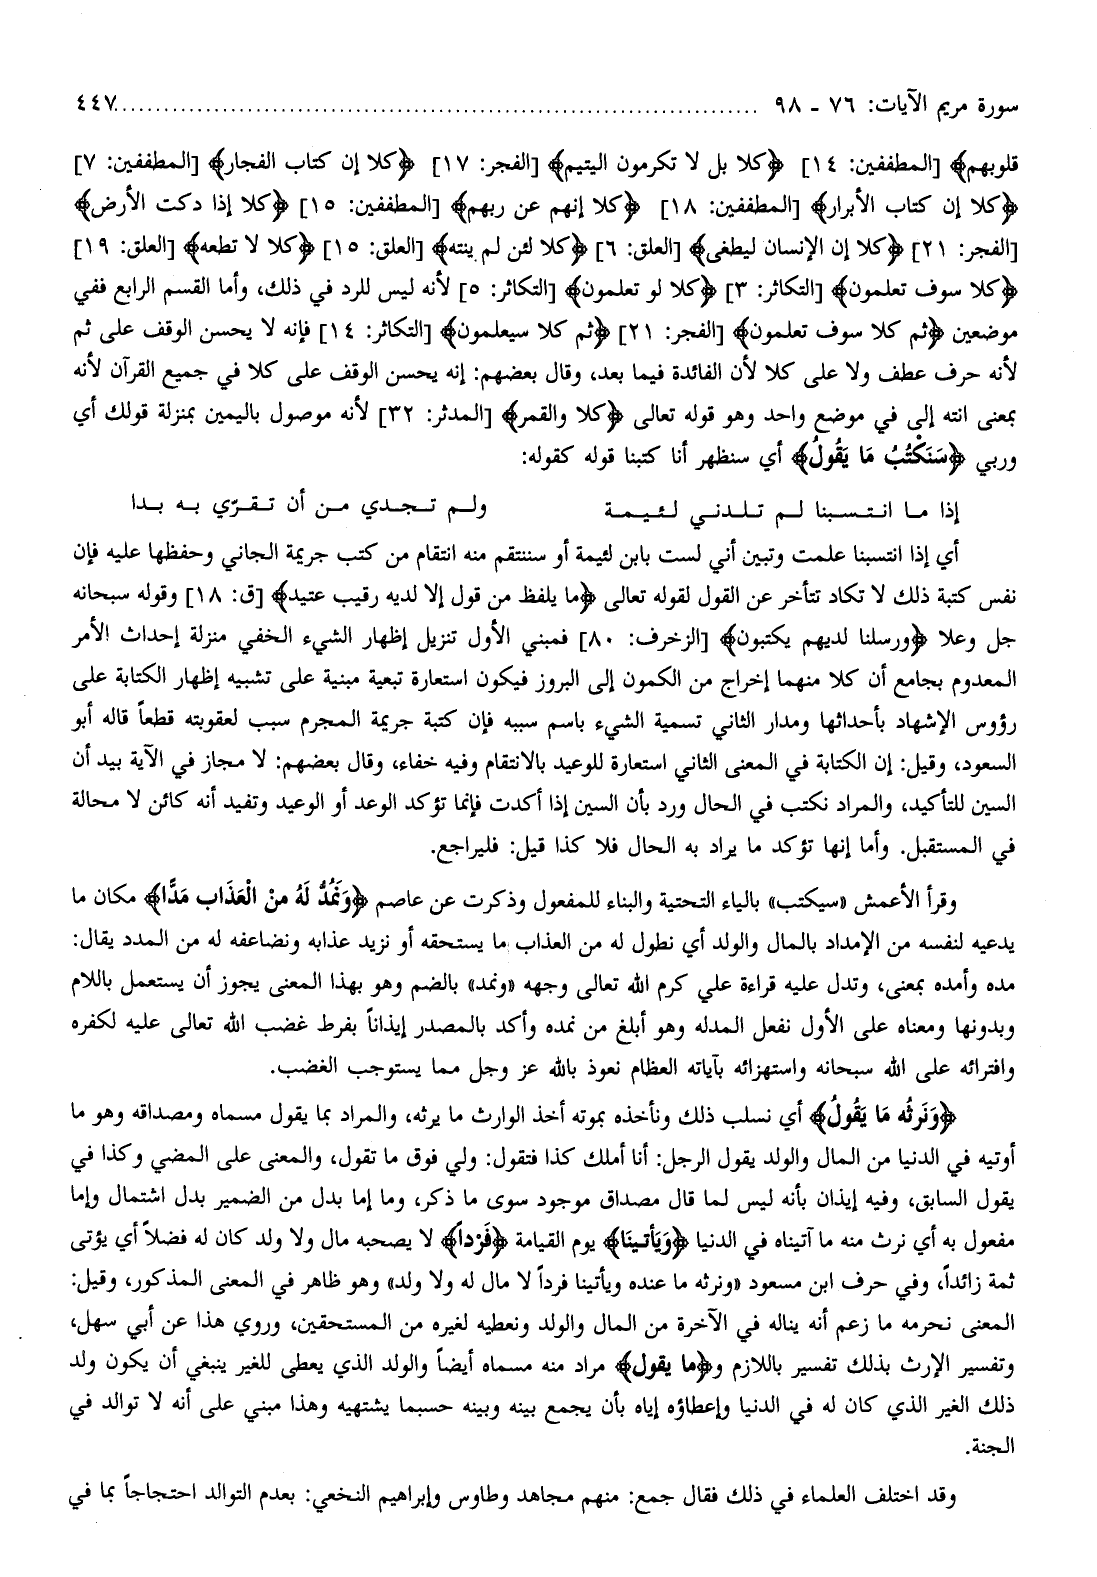 سورة مريم الآيات: ٧٦ - ٩٨ ........................................................................... ٤٤٧
قلوبهم﴾ [المطففين: ١٤] ﴿كلا بل لا تكرمون اليتيم﴾ [الفجر: ١٧] ﴿كلا إن كتاب الفجار﴾ [المطففين: ٧]
﴿كلا إن كتاب الأبرار﴾ [المطففين: ١٨] ﴿كلا إنهم عن ربهم﴾ [المطففين: ١٥] ﴿كلا إذا دكت الأرض﴾
[الفجر: ٢١] ﴿كلا إن الإنسان ليطغى﴾ [العلق: ٦] ﴿كلا لئن لم ينته﴾ [العلق: ١٥] ﴿كلا لا تطعه﴾ [العلق: ١٩]
﴿كلا سوف تعلمون﴾ [التكاثر: ٣] ﴿كلا لو تعلمون﴾ [التكاثر: ٥] لأنه ليس للرد في ذلك، وأما القسم الرابع ففي
موضعين ﴿ثم كلا سوف تعلمون﴾ [الفجر: ٢١] ﴿ثم كلا سيعلمون﴾ [التكاثر: ١٤] فإنه لا يحسن الوقف على ثم
لأنه حرف عطف ولا على كلا لأن الفائدة فيما بعد، وقال بعضهم: إنه يحسن الوقف على كلا في جميع القرآن لأنه
بمعنى انته إلى في موضع واحد وهو قوله تعالى ﴿كلا والقمر﴾ [المدثر: ٣٢] لأنه موصول باليمين بمنزلة قولك أي
وربي ﴿سَنَكْتُبُ مَا يَقُولُ﴾ أي سنظهر أنا كتبنا قوله كقوله:
إذا ما انتسبنا لم تلدني لئيمة ولم تجدي من أن تقرّي به بدا
أي إذا انتسبنا علمت وتبين أني لست بابن لئيمة أو سننتقم منه انتقام من كتب جريمة الجاني وحفظها عليه فإن
نفس كتبة ذلك لا تكاد تتأخر عن القول لقوله تعالى ﴿ما يلفظ من قول إلا لديه رقيب عتيد﴾ [ق: ١٨] وقوله سبحانه
جل وعلا ﴿ورسلنا لديهم يكتبون﴾ [الزخرف: ٨٠] فمبني الأول تنزيل إظهار الشيء الخفي منزلة إحداث الأمر
المعدوم بجامع أن كلا منهما إخراج من الكمون إلى البروز فيكون استعارة تبعية مبنية على تشبيه إظهار الكتابة على
رؤوس الإشهاد بأحداثها ومدار الثاني تسمية الشيء باسم سببه فإن كتبة جريمة المجرم سبب لعقوبته قطعاً قاله أبو
السعود، وقيل: إن الكتابة في المعنى الثاني استعارة للوعيد بالانتقام وفيه خفاء، وقال بعضهم: لا مجاز في الآية بيد أن
السين للتأكيد، والمراد نكتب في الحال ورد بأن السين إذا أكدت فإنما تؤكد الوعد أو الوعيد وتفيد أنه كائن لا محالة
في المستقبل. وأما إنها تؤكد ما يراد به الحال فلا كذا قيل: فليراجع.
وقرأ الأعمش «سيكتب» بالياء التحتية والبناء للمفعول وذكرت عن عاصم ﴿وَنَمُدُّ لَهُ مِنْ الْعَذَاب مَدًّا﴾ مكان ما
يدعيه لنفسه من الإمداد بالمال والولد أي نطول له من العذاب ما يستحقه أو نزيد عذابه ونضاعفه له من المدد يقال:
مده وأمده بمعنى، وتدل عليه قراءة علي كرم الله تعالى وجهه «ونمد» بالضم وهو بهذا المعنى يجوز أن يستعمل باللام
وبدونها ومعناه على الأول نفعل المدله وهو أبلغ من نمده وأكد بالمصدر إيذاناً بفرط غضب الله تعالى عليه لكفره
وافترائه على الله سبحانه واستهزائه بآياته العظام نعوذ بالله عز وجل مما يستوجب الغضب.
﴿وَنَرثُه مَا يَقُولُ﴾ أي نسلب ذلك ونأخذه بموته أخذ الوارث ما يرثه، والمراد بما يقول مسماه ومصداقه وهو ما
أوتيه في الدنيا من المال والولد يقول الرجل: أنا أملك كذا فتقول: ولي فوق ما تقول، والمعنى على المضي وكذا في
يقول السابق، وفيه إيذان بأنه ليس لما قال مصداق موجود سوى ما ذكر، وما إما بدل من الضمير بدل اشتمال وإما
مفعول به أي نرث منه ما آتيناه في الدنيا ﴿وَيَأتينَا﴾ يوم القيامة ﴿فَرْداً﴾ لا يصحبه مال ولا ولد كان له فضلاً أي يؤتى
ثمة زائداً، وفي حرف ابن مسعود «ونرثه ما عنده ويأتينا فرداً لا مال له ولا ولد» وهو ظاهر في المعنى المذكور، وقيل:
المعنى نحرمه ما زعم أنه يناله في الآخرة من المال والولد ونعطيه لغيره من المستحقين، وروي هذا عن أبي سهل،
وتفسير الإرث بذلك تفسير باللازم و﴿ما يقول﴾ مراد منه مسماه أيضاً والولد الذي يعطى للغير ينبغي أن يكون ولد
ذلك الغير الذي كان له في الدنيا وإعطاؤه إياه بأن يجمع بينه وبينه حسبما يشتهيه وهذا مبني على أنه لا توالد في
الجنة.
وقد اختلف العلماء في ذلك فقال جمع: منهم مجاهد وطاوس وإبراهيم النخعي: بعدم التوالد احتجاجاً بما في